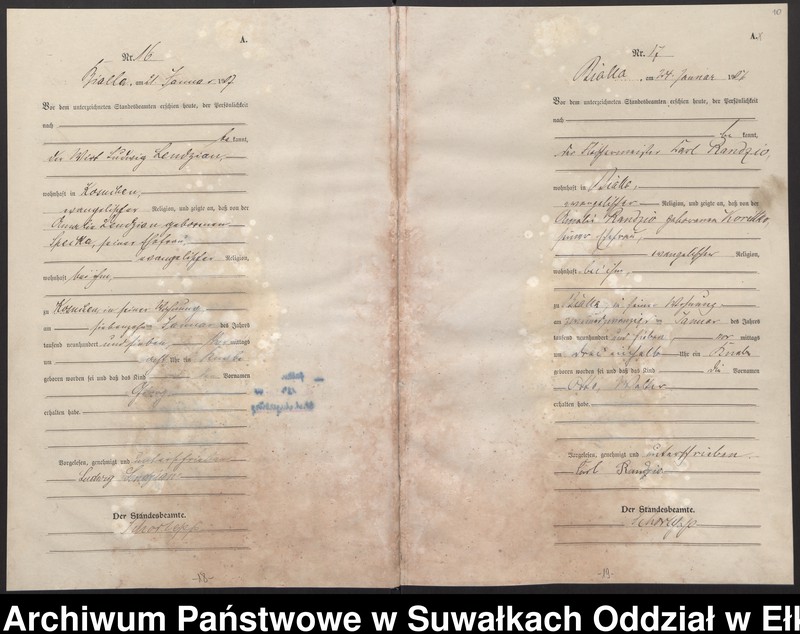 A.
Nr. 16
Bialla, am 21 Januar 1907
Vor dem unterzeichneten Standesbeamten erschien heute, der Persönlichkeit
nach
be kannt,
der Wirt Ludwig Lendzian,
wohnhaft in Kosuchen,
evangelischer Religion, und zeigte an, daß von der
Amalie Lendzian geborenen
seiner Ehefrau,
evangelischer Religion,
wohnhaft bei ihm,
zu Kosuchen in seiner Wohnung
am siebenzehn Januar des Jahres
tausend neunhundert und sieben, mittags
um acht Uhr ein Knabe
geboren worden sei und daß das Kind Vornamen
Georg
erhalten habe.
Vorgelesen, genehmigt und unterschrieben
Ludwig Lendzian
Der Standesbeamte.
-18-
10
A.
Nr. 17
Bialla, am 24. Januar 1907
Vor dem unterzeichneten Standesbeamten erschien heute, der Persönlichkeit
nach
be kannt,
Carl Randzio,
wohnhaft in Bialla,
evangelischer Religion, und zeigte an, daß von der
Amalie Randzio geborenen
seiner Ehefrau,
evangelischer Religion,
wohnhaft bei ihm,
zu Bialla in seiner Wohnung
am Januar des Jahres
tausend neunhundert und sieben vor mittags
um drei einhalb Uhr ein Knabe
geboren worden sei und daß das Kind die Vornamen
Otto, Walter
erhalten habe.
Vorgelesen, genehmigt und unterschrieben.
Carl Randzio
Der Standesbeamte.
-19-
Archiwum Państwowe w Suwałkach Oddział w Ełk